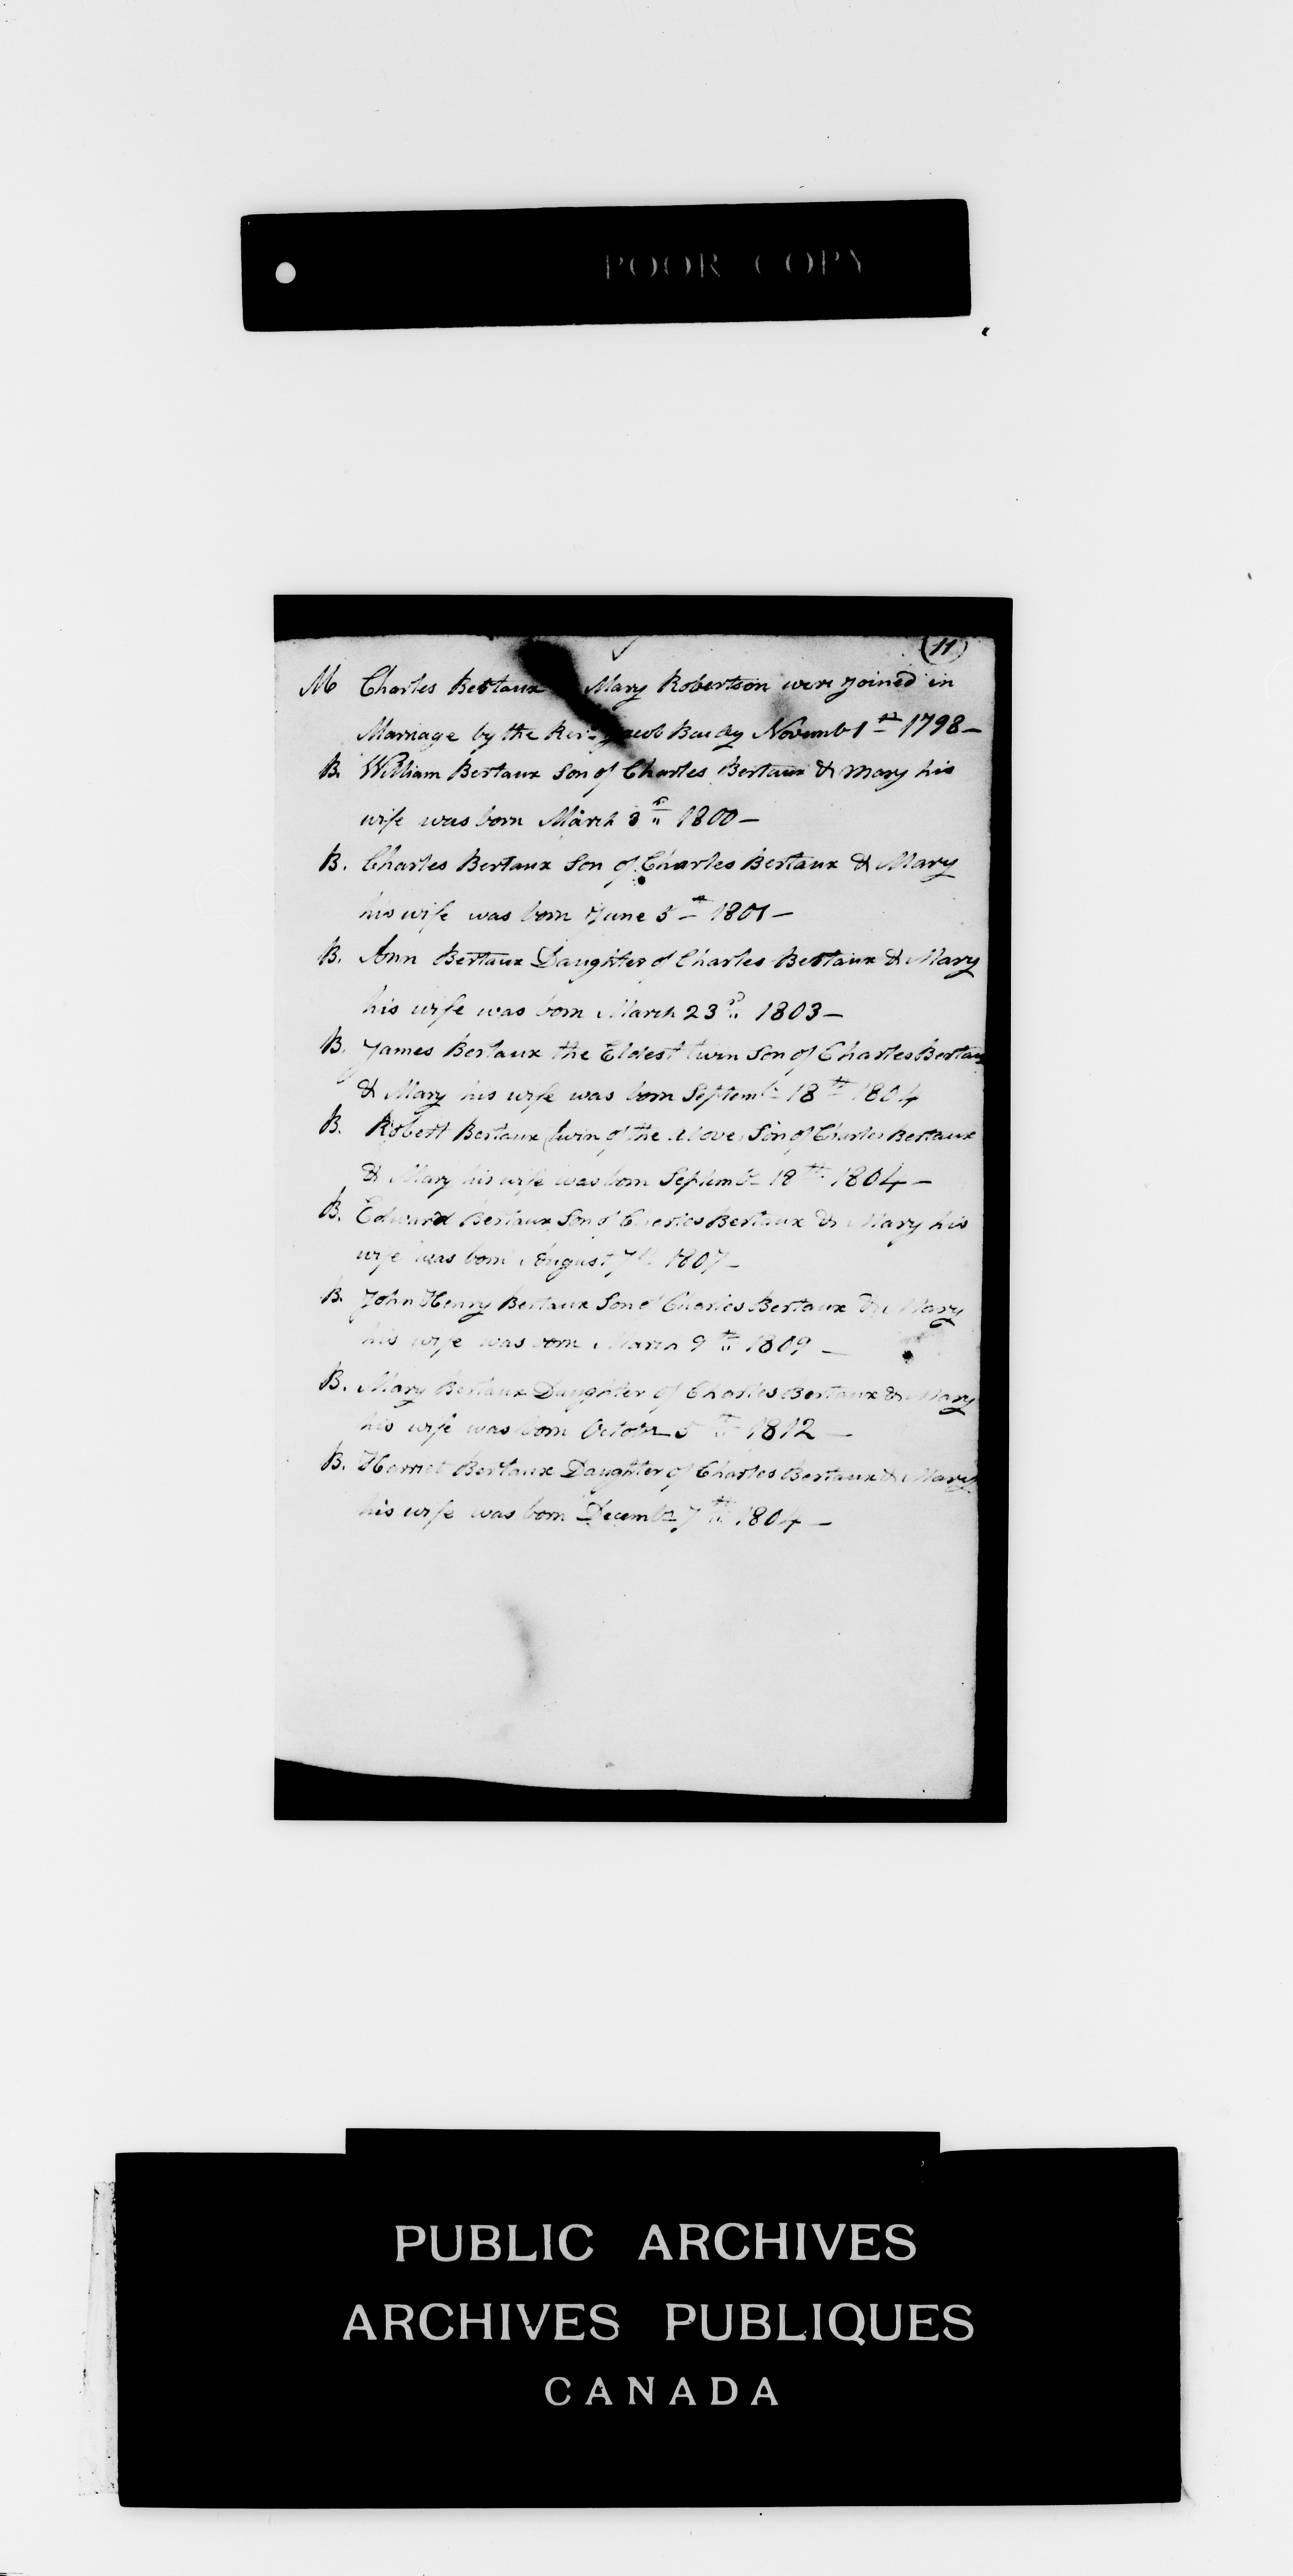 POOR COPY
(11)
M Charles Bertaux Mary Robertson were joined in
Marriage by the Revd Jacob Novembr 1st 1798 –
B. William Bertaux Son of Charles Bertaux & Mary his
wife was born March 3rd 1800 –
B. Charles Bertaux Son of Charles Bertaux & Mary
his wife was born June 5th 1801 –
B. Ann Bertaux Daughter of Charles Bertaux & Mary
his wife was born March 23rd 1803 –
B. James Bertaux the Eldest twin Son of Charles Bertaux
& Mary his wife was born Septembr 18th 1804
B. Robert Bertaux (twin of the above) Son of Charles Bertaux
& Mary his wife was born Septembr 18th 1804 –
B. Edward Bertaux Son of Charles Bertaux & Mary his
wife was born August 7th 1807 –
B. John Henry Bertaux Son of Charles Bertaux & Mary
his wife was born March 9th 1809 –
B. Mary Bertaux Daughter of Charles Bertaux & Mary
his wife was born Octobr 5th 1812 –
B. Harriet Bertaux Daughter of Charles Bertaux & Mary
his wife was born Decembr 7th 1804 –
PUBLIC ARCHIVES
ARCHIVES PUBLIQUES
CANADA